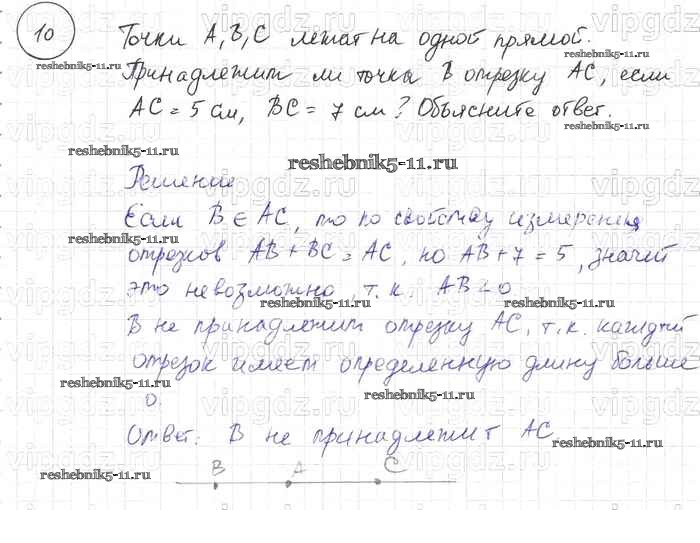 10
Точки A, B, C лежат на одной прямой.
reshebnik5-11.ru
Принадлежит ли точка B отрезку AC, если
AC = 5 см, BC = 7 см? Объясните ответ.
reshebnik5-11.ru
reshebnik5-11.ru
reshebnik5-11.ru
Решение
Если B ∈ AC, то по свойству измерения
reshebnik5-11.ru
отрезков AB + BC = AC, но AB + 7 = 5, значит
это невозможно, т.к. AB < 0
reshebnik5-11.ru
reshebnik5-11.ru
B не принадлежит отрезку AC, т.к. каждый
отрезок имеет определенную длину больше
reshebnik5-11.ru
reshebnik5-11.ru
0.
Ответ: B не принадлежит AC
reshebnik5-11.ru
reshebnik5-11.ru
B A C